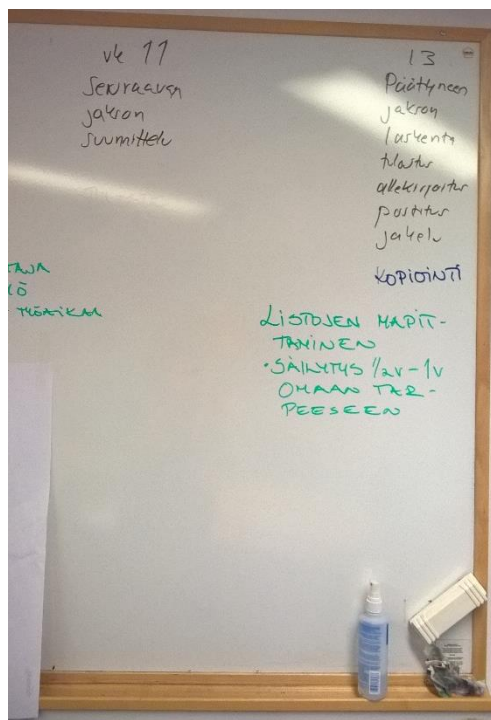 vk 11
Seuraavan
jakson
suunnittelu
13
Päättyneen
jakson
laskenta
tulostus
allekirjoitus
postitus
jakelu
KOPIOINTI
TYÖAIKAA
LISTOJEN MAPIT-
TAMINEN
• SÄILYTYS 1/2v - 1v
OMAAN TAR-
PEESEEN